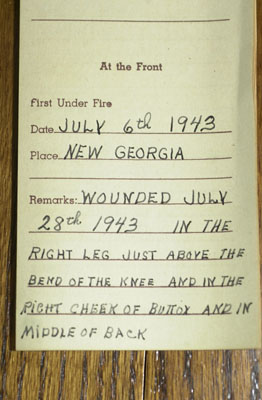 At the Front
First Under Fire
Date JULY 6th 1943
Place NEW GEORGIA
Remarks: WOUNDED JULY
28th 1943 IN THE
RIGHT LEG JUST ABOVE THE
BEND OF THE KNEE AND IN THE
RIGHT CHEEK OF BUTTOX AND IN
MIDDLE OF BACK